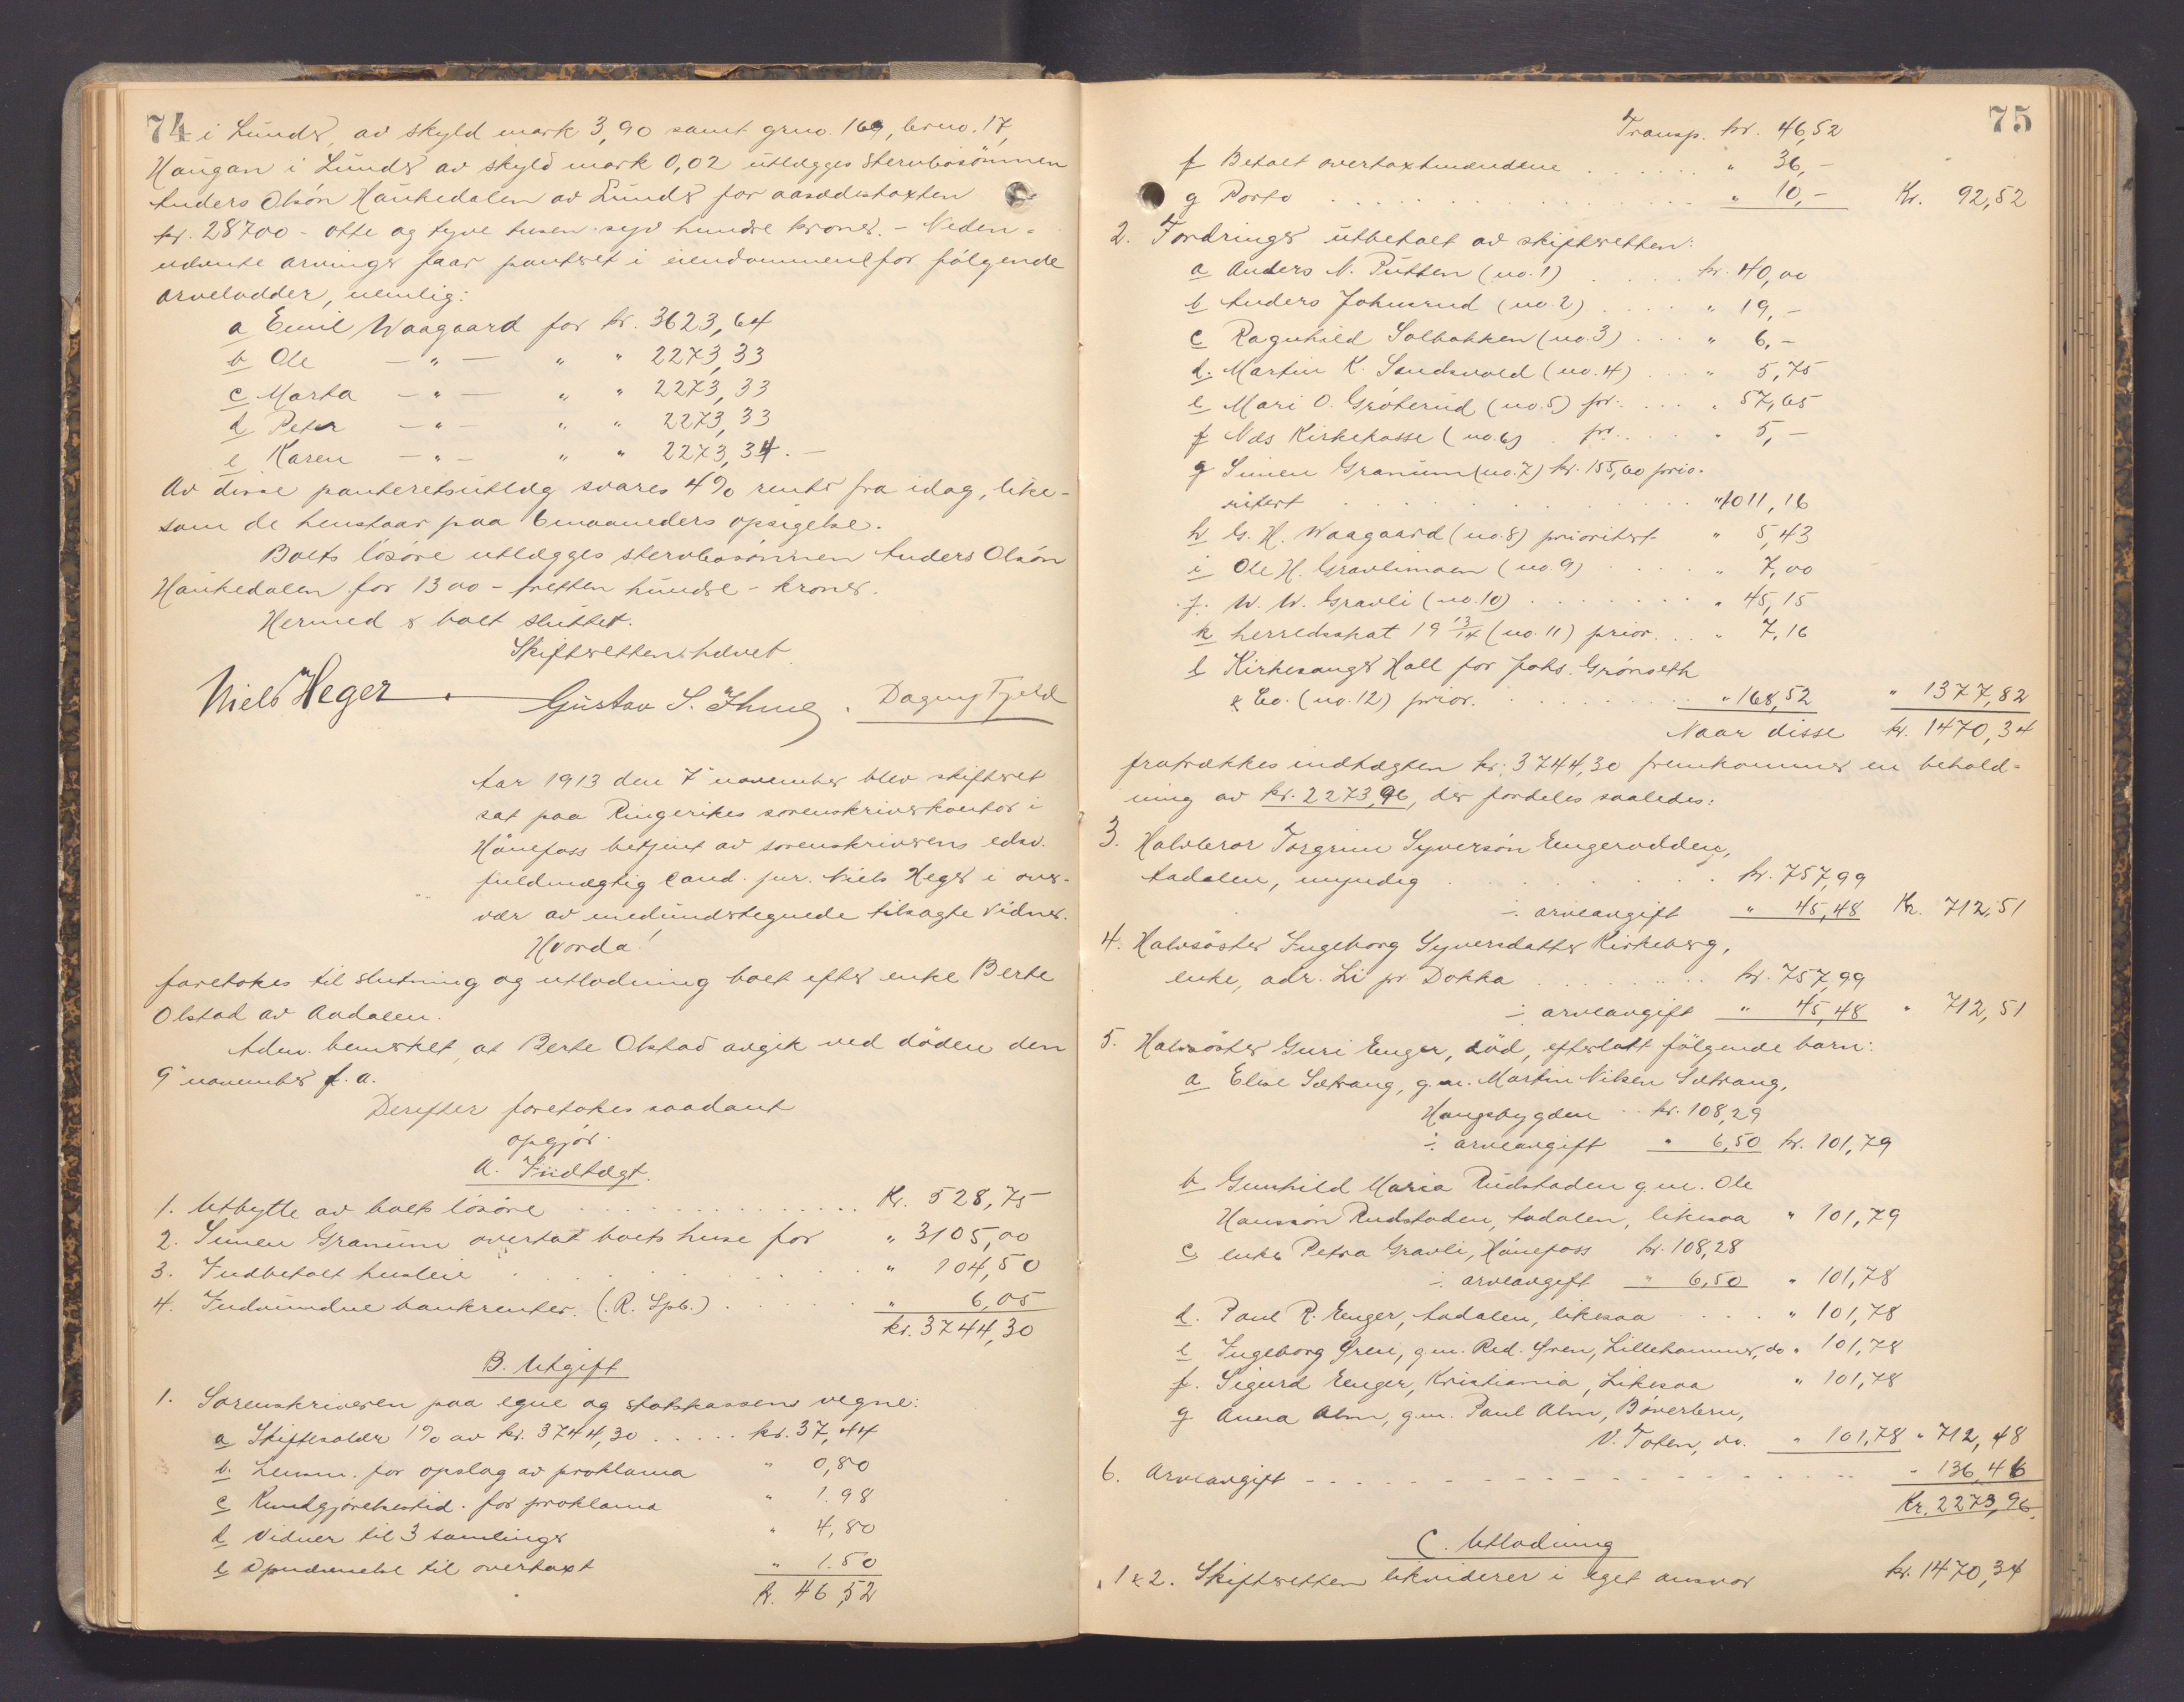 74 i Lunder, av skyld mark 3,90 samt grno. 169, brno. 17,
Haugan i Lunder av skyld mark 0,02 utlægges stervbosønnen
Anders Olsøn Haukedalen av Lunder for aasædestaxten
kr. 28700 - otte og tyve tusen syv hundre kroner. - Neden-
nævnte arvinger faar panteret i eiendommene for følgende
arvelodder, nemlig:
a Emil Waagaard for kr. 3623,64
b Ole — " — " " 2273,33
c Marta — " — " " 2273,33
d Peter — " — " " 2273,33
e Karen — " — " " 2273,34. —
Av disse panteretsutlæg svares 4% rente fra idag, like-
som de henstaar paa 6 maaneders opsigelse.
Boets løsøre utlægges stervbosønnen Anders Olsøn
Haukedalen for 1300 - tretten hundre - kroner.
Hermed er boet sluttet.
Skifteretten hævet
Niels Heger. Gustav S. Ihme. Dagny Fjeld
Aar 1913 den 7 november blev skifteret
sat paa Ringerikes sorenskriverkontor i
Hønefoss betjent av sorenskriverens edsv.
fuldmægtig cand. jur. Niels Heger i over-
vær av medundertegnede tilsagte vidner.
Hvorda!
foretokes til slutning og utlodning boet efter enke Berte
Olstad av Aadalen.
Adm. bemerket, at Berte Olstad avgik ved døden den
9 november f. a.
Derefter foretokes saadant
opgjør.
A. Indtægt.
1. Utbytte av boets løsøre . . . . Kr. 528,75
2. Simen Granum overtat boets huse for " 3105,00
3. Indbetalt husleie . . . . " 104,50
4. Indvundne bankrenter. (R. Spb.) . . . . " 6,05
kr. 3744,30
B. Utgift
1. Sorenskriveren paa egne og statskassens vegne:
a Skiftesalær 1% av kr. 3744,30 . . . . kr. 37,44
b. Lensm. for opslag av proklama " 0,80
c Kundgjørelsestid. for proklama " 1.98
d Vidner til 3 samlinger " 4,80
e Opnævnelse til overtaxt " 1.50
K. 46,52
75
Transp. kr. 46,52
f Betalt overtaxtmændene . . . . " 36,-
g Porto . . . . " 10,- Kr. 92,52
2. Fordringer utbetalt av skifteretten:
a Anders N. Pütten (no. 1) . . . . kr. 40,00
b Anders Johnsrud (no. 2) . . . . " 19,-
c Ragnhild Solbakken (no. 3) . . . " 6,-
d. Martin K. Sandsvold (no. 4) . . . " 5,75
e Mari O. Grøterud (no. 5) pr. . . . " 57,65
f Næs Kirkekasse (no. 6) . pr. . . . " 5,-
g Simen Granum (no. 7) kr. 155,60 prio-
ritert . . . . " 1011,16
h G. H. Waagaard (no. 8) prioritert " 5,43
i Ole H. Gravlimoen (no. 9) . . . . " 7,00
j. W. W. Gravli (no. 10) . . . . " 45,15
k herredsskat 19 13/14 (no. 11) prior. . . " 7,16
l Kirkesanger Hall for Johs. Grønseth
& Co. (no. 12) prior. . . . . " 168,52 " 1377,82
Naar disse kr. 1470,34
fratrækkes indtægten kr. 3744,30 fremkommer en behold-
ning av kr. 2273,96, der fordeles saaledes:
3. Halvbror Torgrim Syversøn Engerodden,
Aadalen, umyndig . . . . kr. 757,99
÷ arveavgift " 45,48 Kr. 712,51
4. Halvsøster Ingeborg Syversdatter Kirkeberg,
enke, adr. Li pr. Dokka . . . . kr. 757,99
÷ arveavgift " 45,48 " 712,51
5. Halvsøster Guri Enger, død, efterlatt følgende barn:
a Elise Sætrang, g. m. Martin Nilsen Sætrang,
Haugsbygden . . kr. 108,29
÷ arveavgift " 6,50 kr. 101,79
b Gunhild Maria Rudstaden g. m. Ole
Hanssøn Rudstaden, Aadalen, likesaa " 101,79
c enke Petra Gravli, Hønefoss kr. 108,28
÷ arveavgift " 6,50 " 101,78
d. Paul R. Enger, Aadalen, likesaa . . . " 101,78
e Ingeborg Øren, g. m. Red. Øren, Lillehammer, do " 101,78
f. Sigurd Enger, Kristiania, Likesaa " 101,78
g Anna Alm, g. m. Paul Alm, Bøverbru,
V. Toten, do. " 101,78 " 712,48
6. Arveavgift . . . . " 136,46
Kr. 2273,96.
C. Utlodning
1 & 2. Skifteretten likviderer i eget ansvar kr. 1470,34